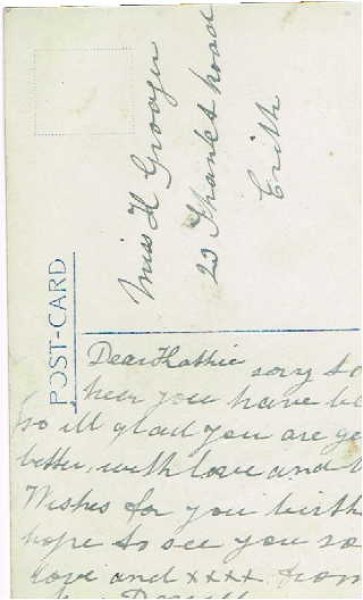 POST-CARD
Miss H
23 road
Erith
Dear Kathie
sorry to
hear you have be
so ill glad you are ge
better, with love and b
Wishes for you birth
hope to see you so
love and xxxx from